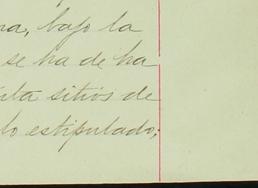 na, bajo la
se ha de ha
sitios de
lo estipulado;